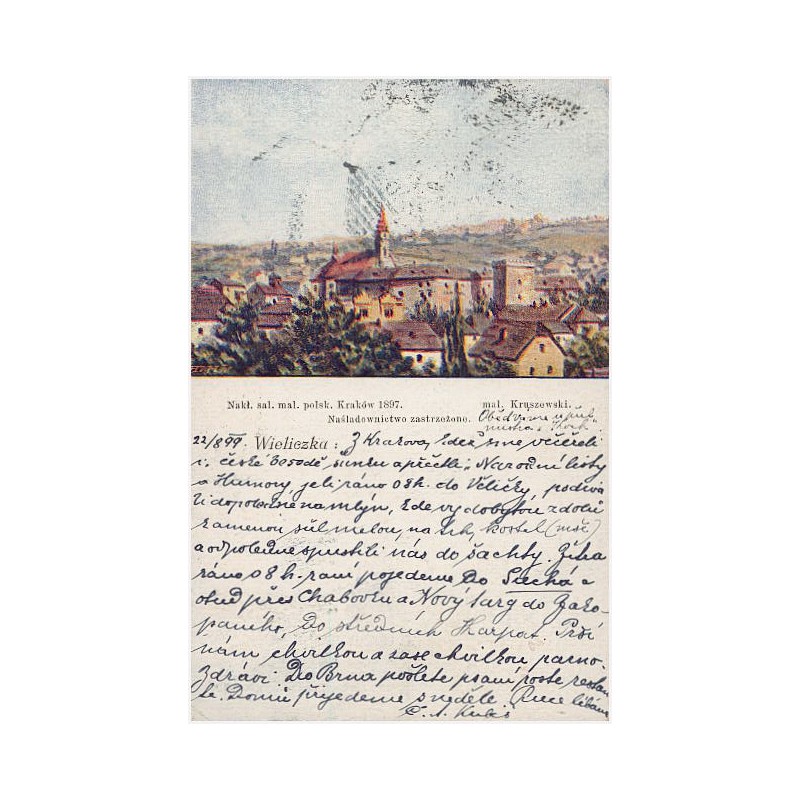 Nakł. sal. mal. polsk. Kraków 1897. mal. Kruszewski.
Naśladownictwo zastrzeżone.
22/8 899. Wieliczka: Z Krakova, kdež sme večeřeli
v české besedě šunku a přečtli Narodní listy
a jeli ráno o 8h. do Věličky, podíva
li dopoledne na mlýn, kde vydobytou z dolů
kamenou sůl melou, na trh, kostel (mši)
a odpoledne spustili nás do šachty. Zítra
ráno o 8 h. raní pojedeme Do Suchá a
otud přes Chabovku a Nový targ do Zako-
paného, Do středních Karpat. Prší
nám chvilkou a zase chvilkou parno.
Zdrávi. Do Brna pošlete psaní poste restan
te. Domů přijedeme v neděle. Ruce líbám